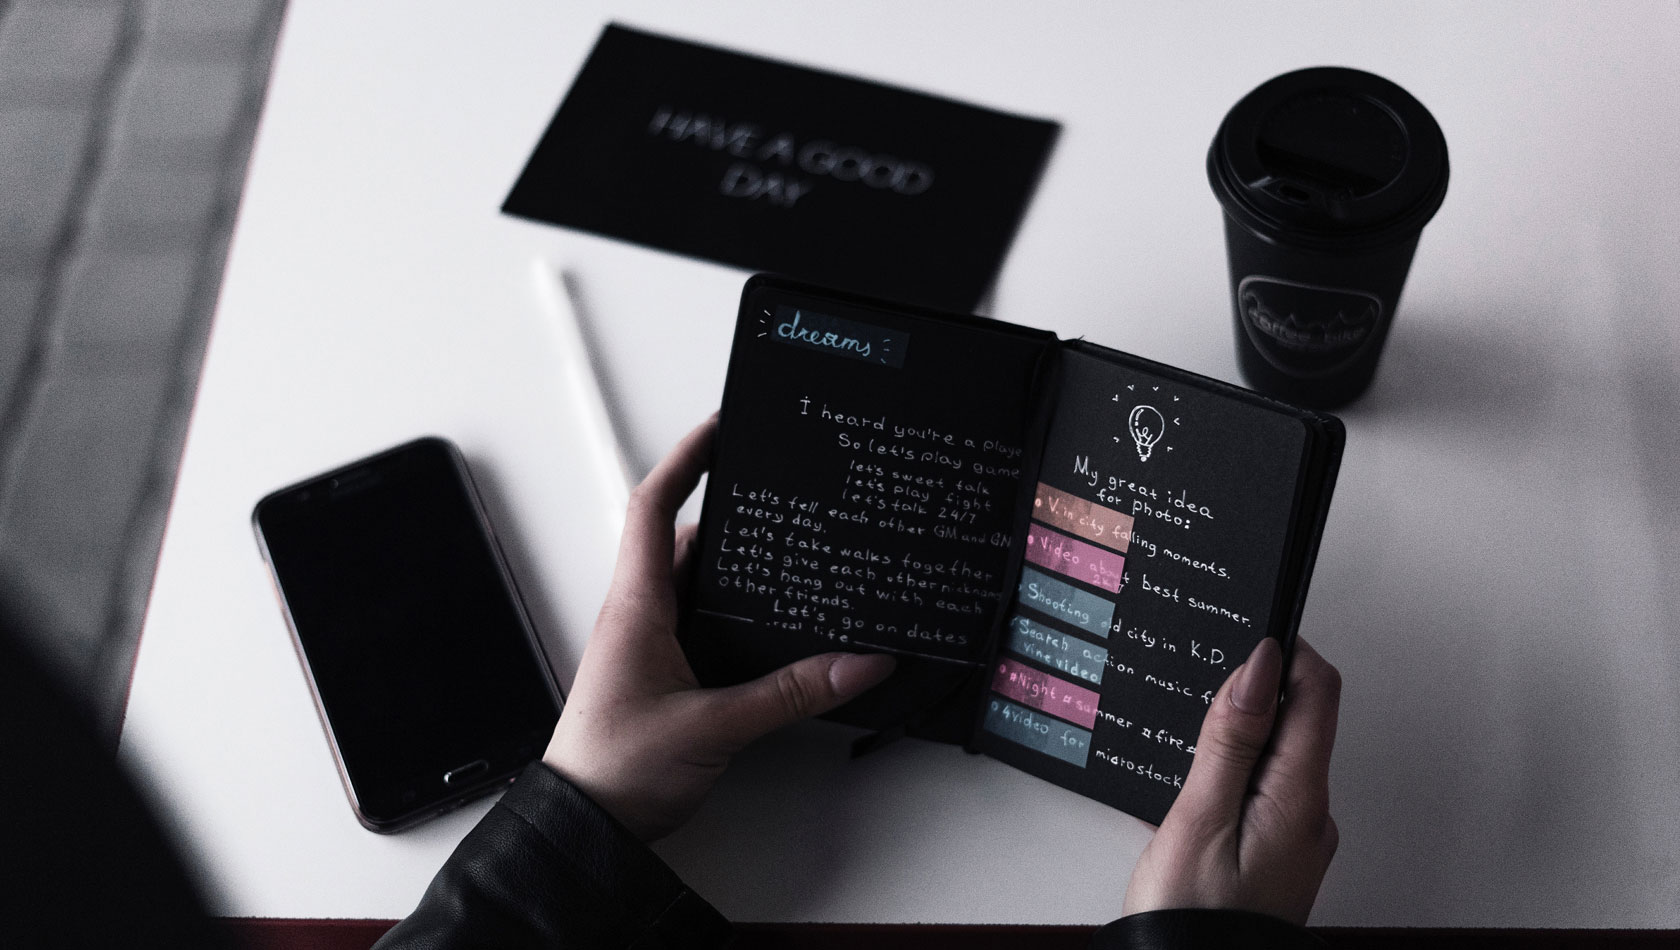 HAVE A GOOD
DAY
coffee bike
dreams
I heard you're a playe
So let's play game
let's sweet talk
let's play fight
let's talk 24/7
Let's tell each other GM and GN
every day.
Let's take walks together
Let's give each other nicknames
Let's hang out with each
other friends.
Let's go on dates
real life
My great idea
for photo:
V. in city falling moments.
Video about best summer.
Shooting old city in K.D.
Search action music f
vine video
#Night #summer #fire#
4video for microstock